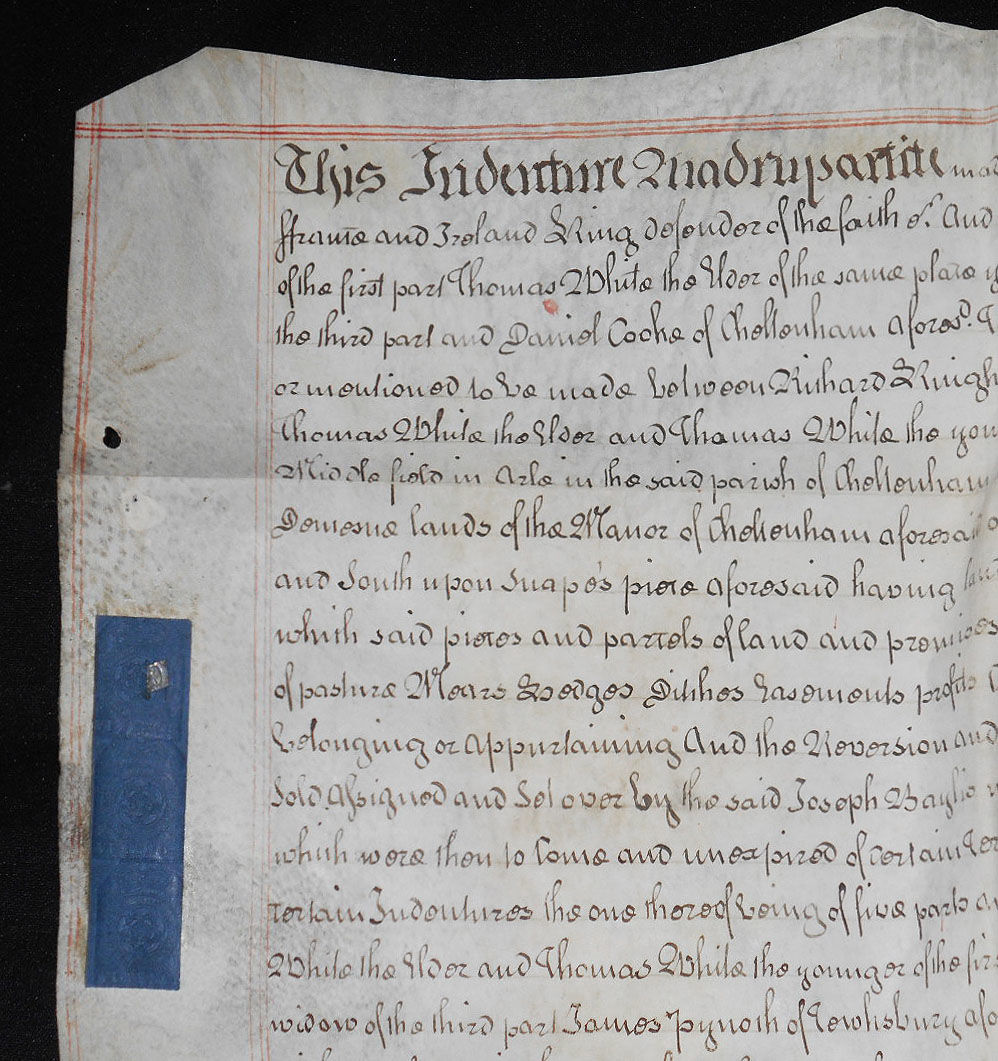 This Indenture Quadrupartite mad
ffrance and Ireland King defender of the faith &c. And
of the first part Thomas White the Elder of the same place y
the third part and Daniel Cooke of Cheltenham afores.d
or mentioned to be made between Richard
Thomas White the Elder and Thomas White the youn
Middle field in Arle in the said parish of Cheltenham
Demesne lands of the Manor of Cheltenham aforesaid
and South upon Snape's piece aforesaid having
which said pieces and parcels of land and premises
of pasture Mears Hedges Ditches Easements profits
belonging or appurtaining And the Reversion and
Sold Assigned and Set over by the said Joseph
which were then to Come and unexpired of certain
certain Indentures the one thereof being of five parts
White the Elder and Thomas White the younger of the firs
widow of the third part James Pynock of Tewksbury afo